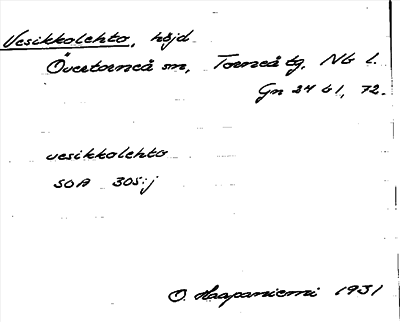 Vesikkolehto, höjd
Övertorneå sn, Torneå tg, Nb l.
Gn 24 61, 72.
vesikkolehto
SOA 305:j
O. Haapaniemi 1931